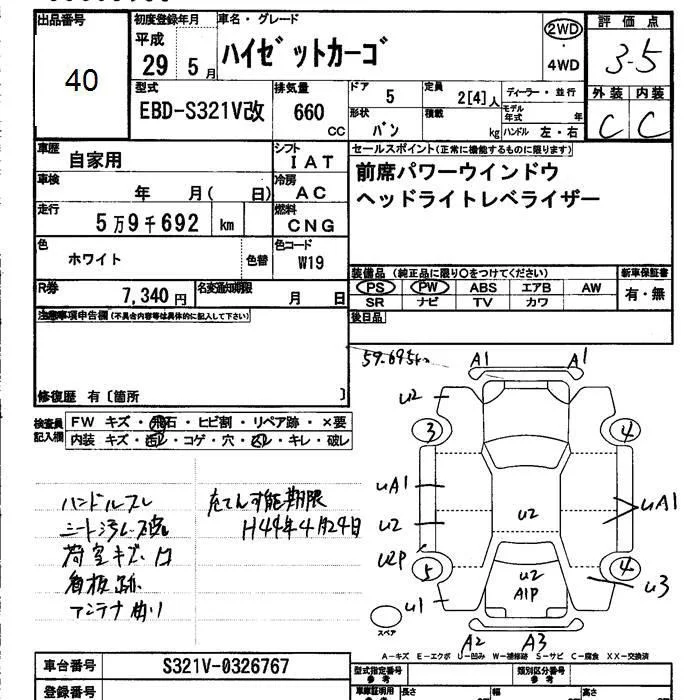 出品番号
40
初度登録年月
平成
29 5月
車名・グレード
ハイゼットカーゴ
2WD
・
4WD
評価点
3.5
型式
EBD-S321V改
排気量
660
CC
ドア
5
定員
2[4]人
ディーラー・並行
形状
バン
積載
kg
モデル年式
年
ハンドル 左・右
外装 内装
C C
車歴
自家用
シフト
IAT
車検
年 月( 日)
冷房
AC
走行
5万9千692 km
燃料
CNG
色
ホワイト
色替
色コード
W19
R券
7,340円
名変通知期限
月 日
セールスポイント(正常に機能するものに限ります)
前席パワーウインドウ
ヘッドライトレベライザー
装備品 (純正品に限り○をつけてください)
PS PW ABS エアB AW
SR ナビ TV カワ
新車保証書
有・無
後日品
注意事項申告欄(不具合内容等は具体的に記入して下さい)
修復歴 有〔箇所 〕
検査員記入欄
FW キズ・飛石・ヒビ割・リペア跡・×要
内装 キズ・汚レ・コゲ・穴・凹レ・キレ・破レ
ハンドルスレ
荷室キズ・凹
看板跡
アンテナ曲り
充てん可能期限
H44年4月24日
59.695km
A1 A1
U2
3 4
UA1
UA1
U2
U2
U2P
5 4
U2
A1P
U3
U1
スペア
A2 A3
A-キズ E-エクボ U-凹み W-補修跡 S-サビ C-腐食 XX-交換済
車台番号
S321V-0326767
登録番号
型式指定番号
参考
類別区分番号
参考
車庫証明用
長さ
幅
高さ